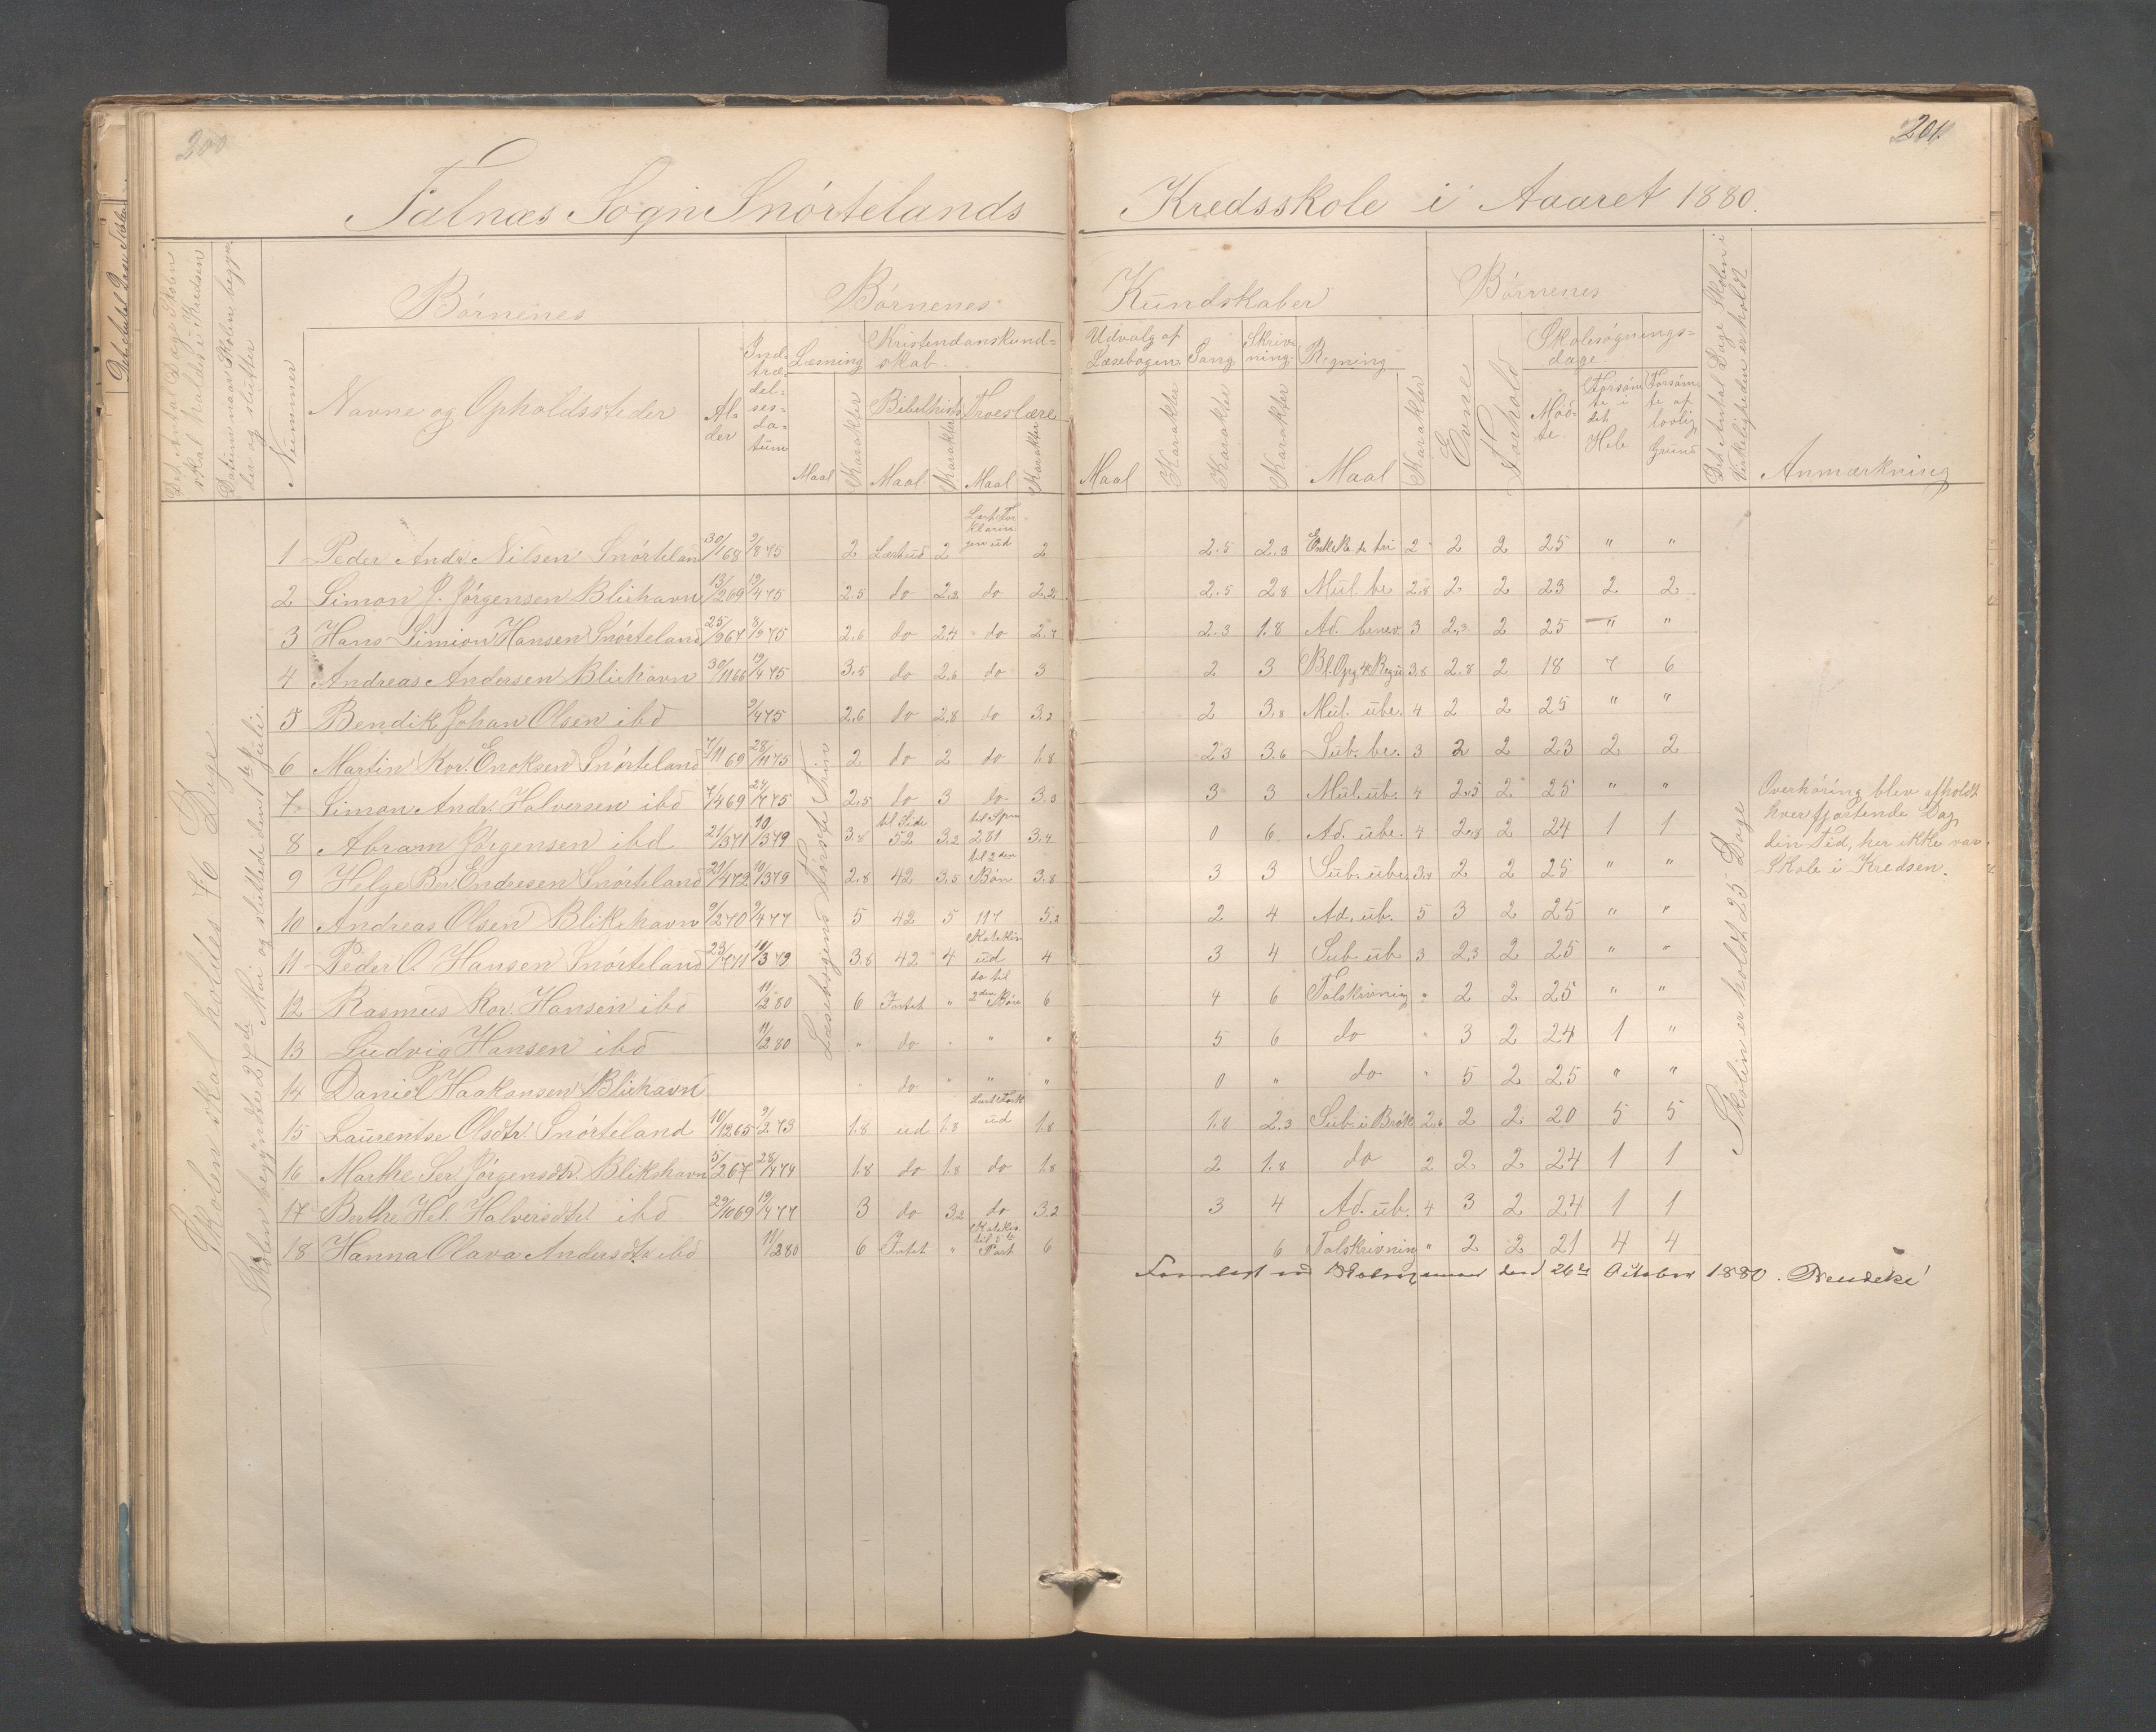 200
201.
Falnæs Sogn Snórtelands Kredsskole i Aaaret 1880.
Det Antal Dage Skolen skal holdes i Kredsen
Datum naar Skolen begynder og slutter
Nummer
Børnenes
Navne og Opholdssteder
Alder
Indtrædelsesdatum
Børnenes Kundskaber
Læsning
Maal
Karakter
Kristendomskundskab
Bibelhist.
Maal
Karakter
Troeslære
Maal
Karakter
Udvalg af Læsebogen
Maal
Karakter
Sang
Karakter
Skrivning
Karakter
Regning
Maal
Karakter
Børnenes
Evne
Forhold
Skolesøgningsdage
Mødte
Forsømte i det Hele
Forsømte af lovlig Grund
Det Antal Dage Skolen i Virkeligheden er holdt
Anmærkning
Skolen skal holdes 76 Dage.
Skolen begyndte 27de Mai og sluttede den 1te Juli.
Læsebogens Første Trin
1 Peder Andr. Nilsen Snórteland 30/1 68 9/8 75 2 Lærtud 2 Lært Forklaringen ud 2 2.5 2.3 2 2 2 25 " "
2 Simon J. Jørgensen Blikhavn 13/2 69 19/4 75 2.5 do 2.2 do 2.2 2.5 2.8 Mul. be 2.8 2 2 23 2 2
3 Hans Simion Hansen Snórteland 25/9 67 8/9 75 2.6 do 2.4 do 2.7 2.3 1.8 Ad. benev. 3 2.3 2 25 " "
4 Andreas Andersen Blikhavn 30/11 66 19/4 75 3.5 do 2.6 do 3 2 3 3.8 2.8 2 18 7 6
5 Bendik Johan Olsen ibd 9/4 75 2.6 do 2.8 do 3.2 2 3.8 Mul. ube. 4 2 2 25 " "
6 Martin Kor. Enoksen Snórteland 7/11 69 28/11 75 2 do 2 do 1.8 2.3 3.6 Sub. be. 3 2 2 23 2 2
7 Simon Andr. Halversen ibd 7/4 69 24/7 75 2.5 do 3 do 3.3 3 3 Mul. ub. 4 2.5 2 25 " "
8 Abram Jørgensen ibd 21/3 71 10/3 79 3.8 til Side 52 3.2 til Spm 281 3.4 0 6 Ad. ube. 4 2.8 2 24 1 1
9 Helge Ber. Endresen Snórteland 20/4 72 10/3 79 2.8 42 3.5 til 2den Bøn 3.8 3 3 Sub. ube. 3.8 2 2 25 " "
10 Andreas Olsen Blikshavn 9/2 70 9/4 77 5 42 5 117 5.2 2 4 Ad. ub. 5 3 2 25 " "
11 Peder O. Hansen Snórteland 23/7 71 10/3 79 3.8 42 4 Katekis ud 4 3 4 Sub ub 3 2.3 2 25 " "
12 Rasmus Kor. Hansen ibd 11/2 80 6 Intet " do til 2den Bøn 6 4 6 Talskrivnig " 2 2 25 " "
13 Ludvig Hansen ibd 11/2 80 " do " " " 5 6 do " 3 2 24 1 "
14 Daniel P. Haakonsen Blikhavn " do " " " 0 " do " 5 2 25 " "
15 Laurentse Olsdtr. Snórteland 10/12 65 9/2 73 1.8 ud 1.8 Lært Fork ud 1.8 1.8 2.3 Sub. i Brøk 2.6 2 2 20 5 5
16 Marthe Ser. Jørgensdtr. Blikshavn 5/2 67 28/4 74 1.8 do 1.8 do 1.8 2 1.8 do 2 2 2 24 1 1
17 Berthe Hel. Halversdtr. ibd 29/10 69 19/4 77 3 do 3.2 do 3.2 3 4 Ad. ub. 4 3 2 24 1 1
18 Hanna Olava Andersdtr ibd 11/2 80 6 Intet " Katekis til 5te Part 6 6 Talskrivning " 2 2 21 4 4
Skolen er holdt 25 Dage
Overhøring blev afholdt
hver fjortende Dag
din Tid, her ikke var
Skole i Kredsen.
den 26de October 1880.